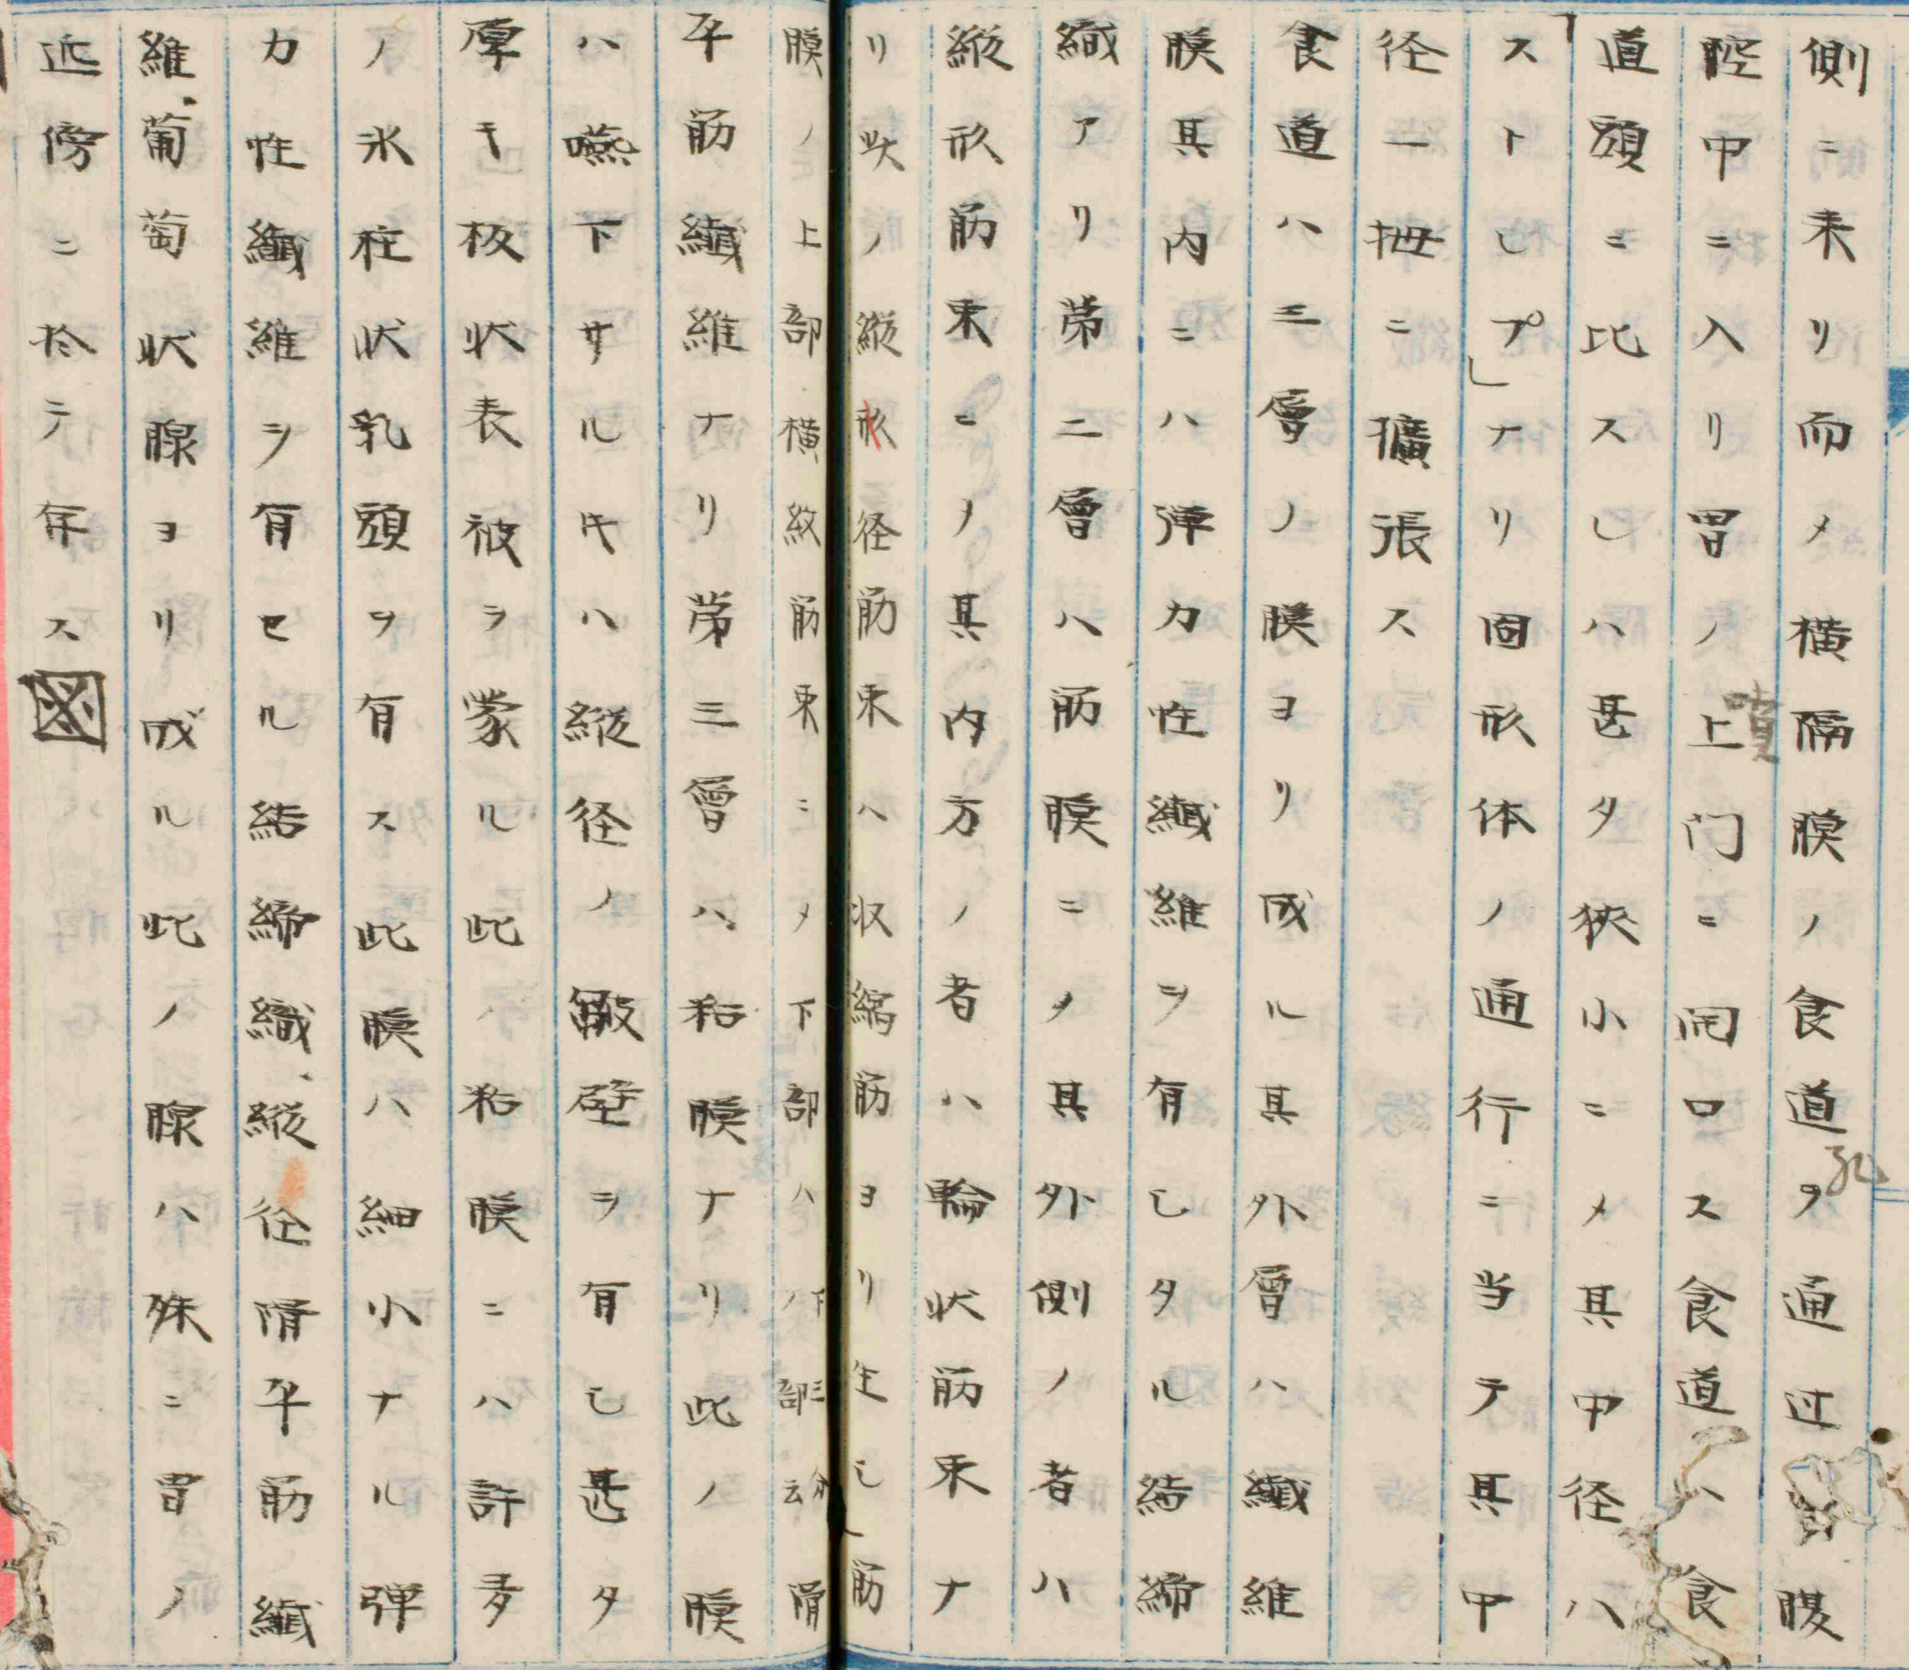 側ニ来リ而メ横隔膜ノ食道孔ヲ通过腹
腔中ニ入リ胃ノ上噴门ニ開口ス食道ハ食
道頭ニ比スレハ甚タ狹小ニメ其中径ハ
「ストレプ」ナリ固形体ノ通行ニ当テ其中
径一拇ニ擴張ス
食道ハ三層ノ膜ヨリ成ル其外層ハ纎維
膜其内ニハ弾力性纎維ヲ有レタル結締
織アリ第二層ハ筋膜ニメ其外側ノ者ハ
縦形筋束ニメ其内方ノ者ハ輪状筋束ナ
リ此ノ縦径筋束ハ収縮筋ヨリ生レ筋
膜ノ上部横紋筋束ニメ下部ハ滑
平筋纎維ナリ第三層ハ粘膜ナリ此ノ膜
ハ嚥下サルルキハ縦径ノ皺壁ヲ有レ甚タ
厚キ板状表被ヲ蒙ル此ノ粘膜ニハ許多
ノ氷柱状乳頭ヲ有ス此膜ハ細小ナル弾
力性纎維ヲ有セル結締織縦径滑平筋纎
維葡萄状腺ヨリ成ル此ノ腺ハ殊ニ胃ノ
近傍ニ於テ存ス図